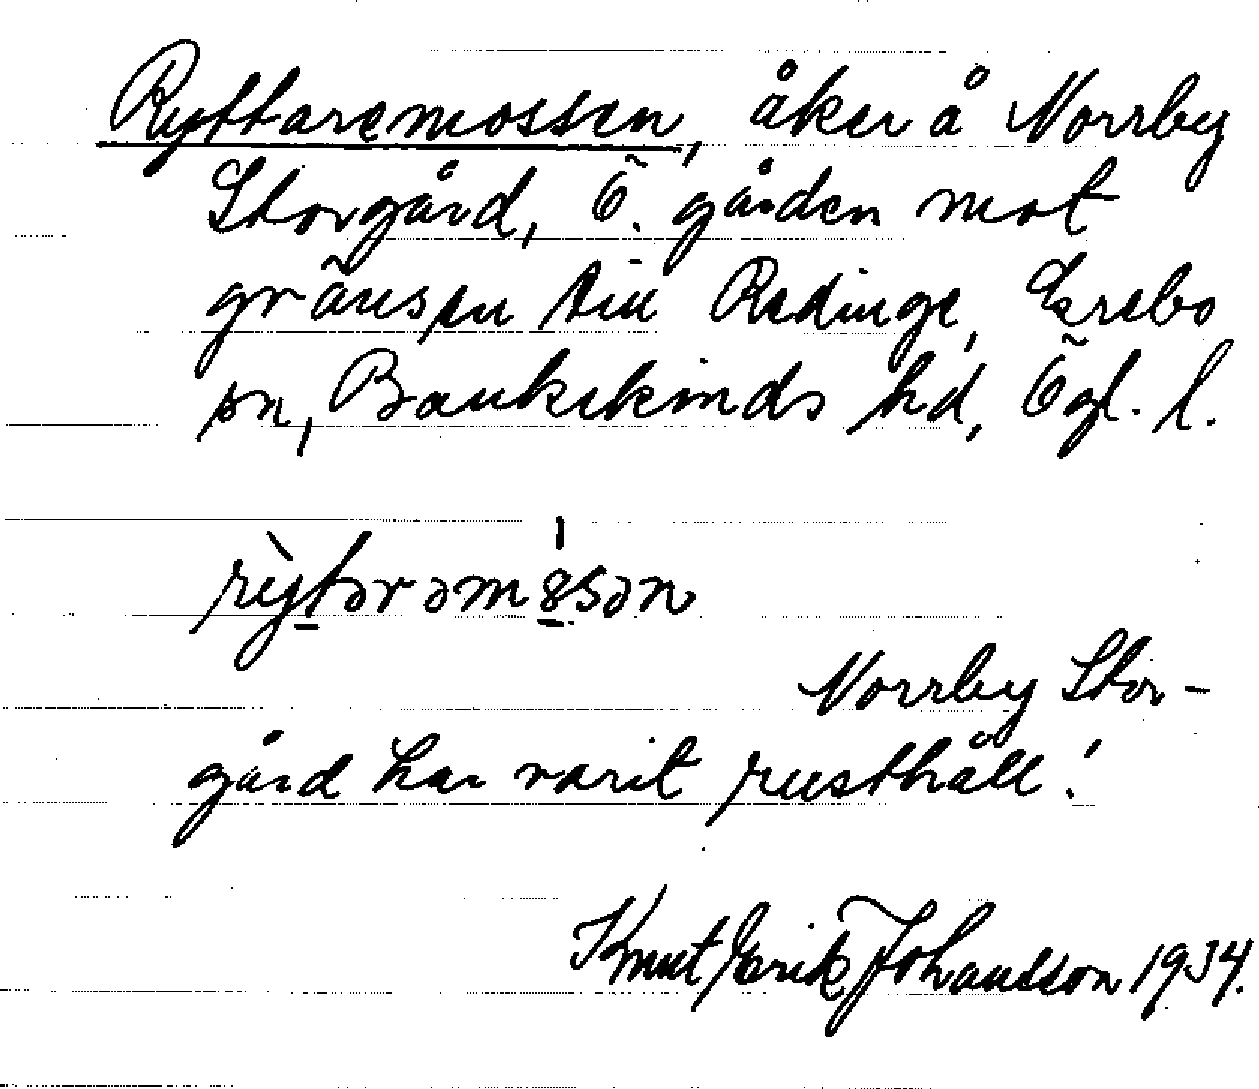 Ryttaremossen, åker å Norrby
Storgård, Ö. gården mot
gränsen till Redinge, Ekebo
sn, Bankekinds hd, Ögl. l.
Norrby Stor-
gård har varit rusthåll!
Knut Erik Johansson 1934.